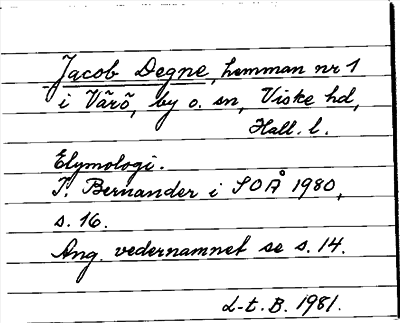 Jacob Degne, hemman nr 1
i Värö, by o. sn, Viske hd,
Hall. l.
Etymologi.
I. Bernander i SOÅ 1980,
s. 16.
Ang. vedernamnet se s. 14.
L-t. B. 1981.